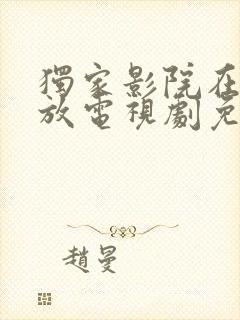 獨家影院在
放電視劇免
趙曼